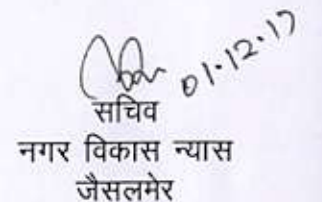 01.12.17
सचिव
नगर विकास न्यास
जैसलमेर